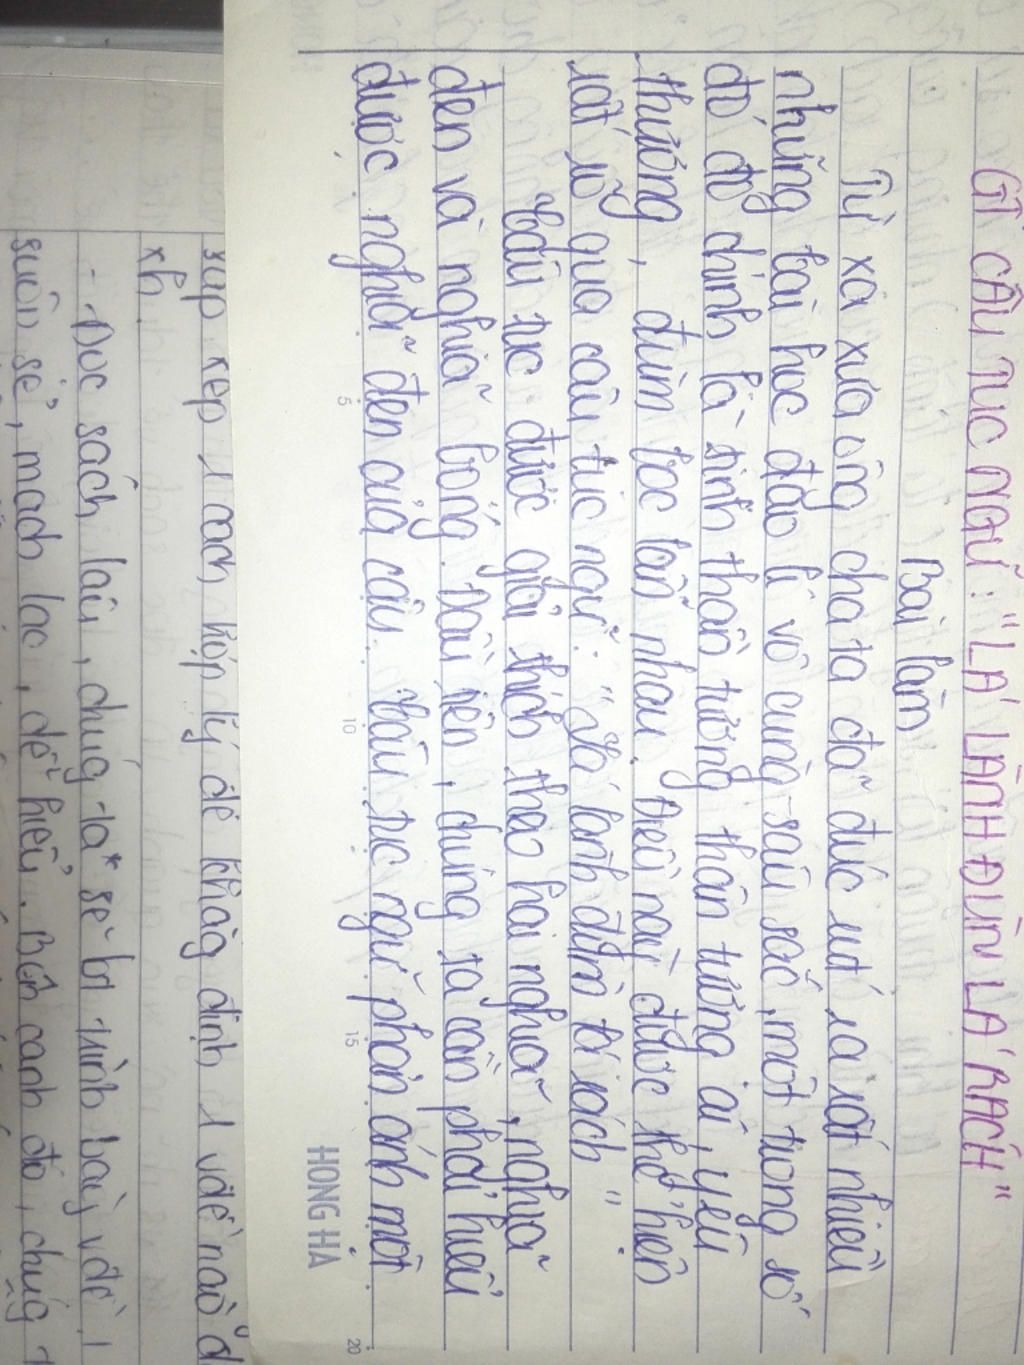 GT CÂU TỤC NGỮ : "LÁ LÀNH ĐÙM LÁ RÁCH"
Bài làm
Từ xa xưa ông cha ta đã đúc rút ra rất nhiều
những bài học đạo lí vô cùng sâu sắc, một trong số
đó đó chính là tinh thần tương thân tương ái, yêu
thương, đùm bọc lẫn nhau. Điều này được thể hiện
rất rõ qua câu tục ngữ: "Lá lành đùm lá rách".
Câu tục được giải thích theo hai nghĩa, nghĩa
đen và nghĩa bóng. Đầu tiên, chúng ta cần phải hiểu
được nghĩa đen của câu. Câu tục ngữ phản ánh một
HONG HA
5 10 15 20
xếp 1 cách hợp lý để khẳng định 1 vđề nào
xh.
- Đọc sách lâu, chúng ta* sẽ bt trình bày vđề 1
suôn sẻ, mạch lạc, dễ hiểu. Bên cạnh đó, chúng